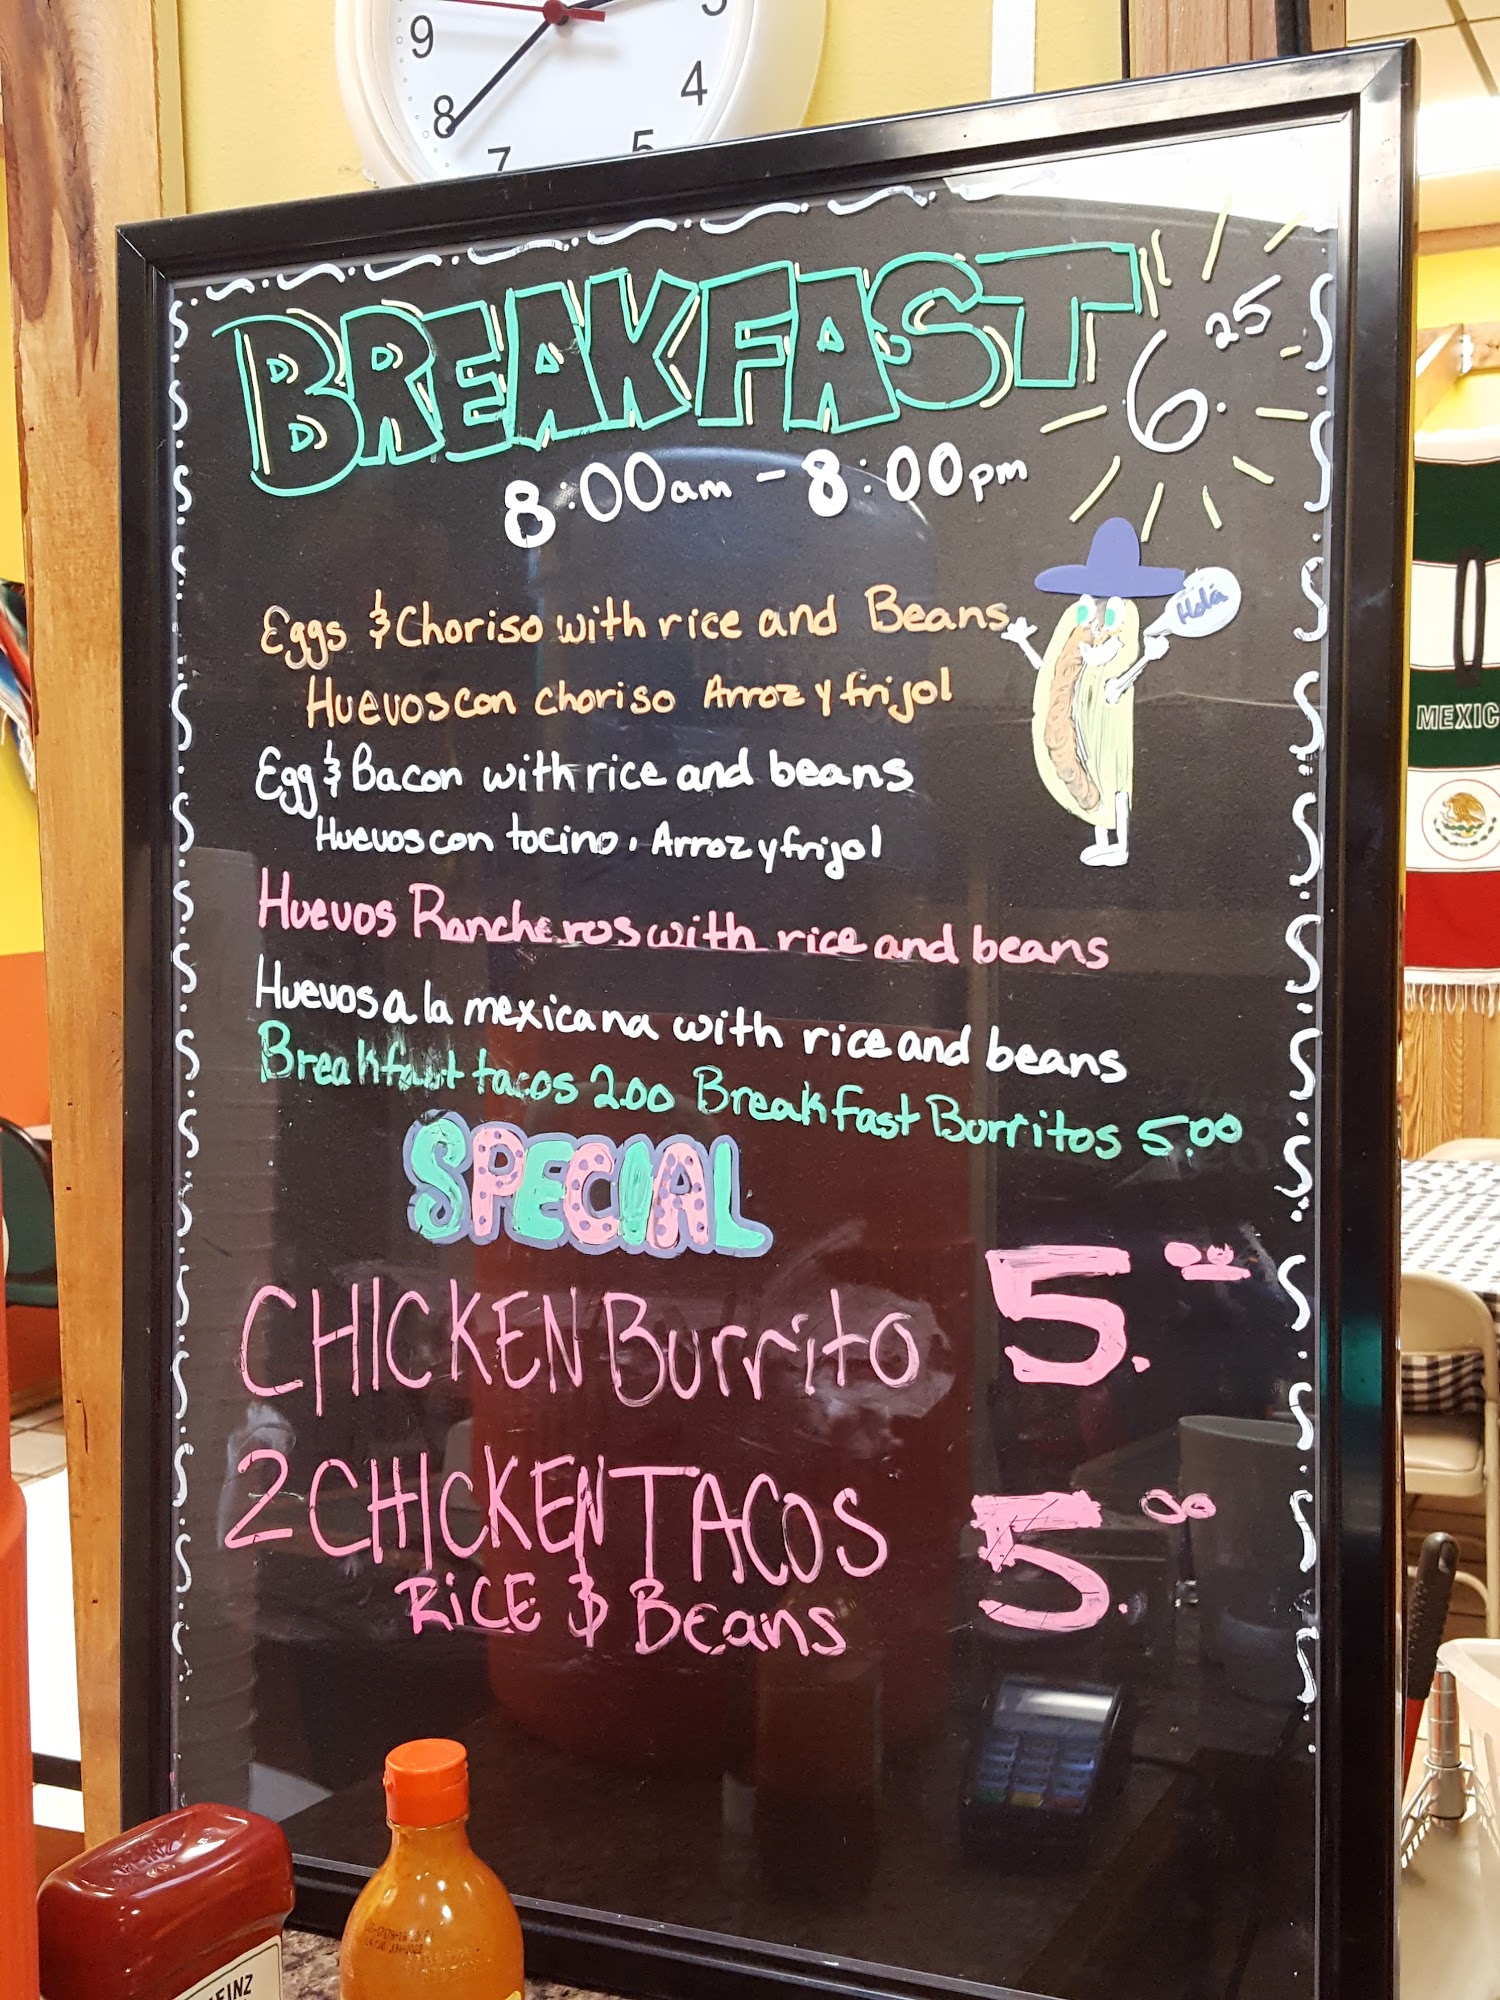 9
8
7
5
4
3
BREAKFAST
6.25
8:00am - 8:00pm
Hola
Eggs & Choriso with rice and Beans
Huevos con choriso Arroz y frijol
Egg & Bacon with rice and beans
Huevos con tocino, Arroz y frijol
Huevos Rancheros with rice and beans
Huevos a la mexicana with rice and beans
Breakfast tacos 2.00 Breakfast Burritos 5.00
SPECIAL
CHICKEN Burrito 5.00
2 CHICKEN TACOS 5.00
RiCE & Beans
MEXIC
HEINZ
EINZ